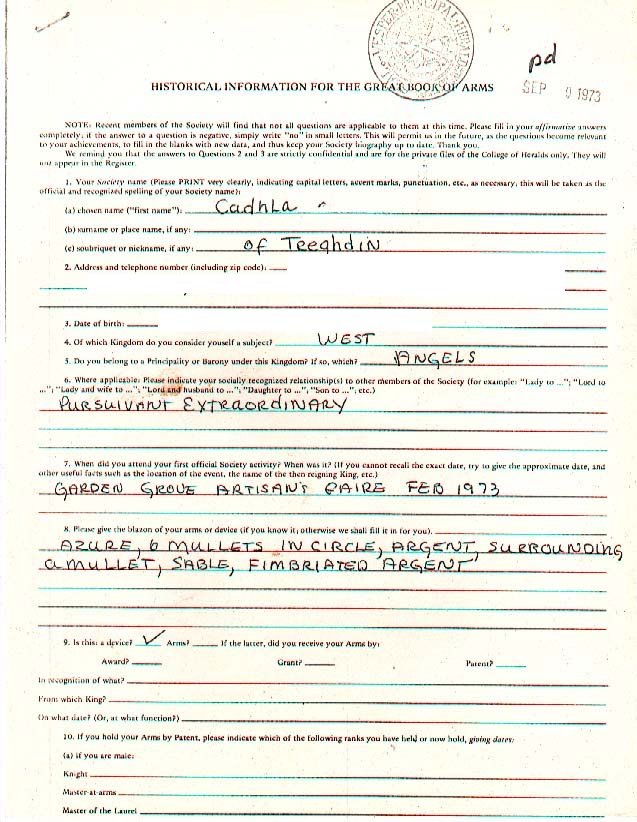 VESPER PRINCIPAL HERALD
pd
HISTORICAL INFORMATION FOR THE GREAT BOOK OF ARMS
SEP 9 1973
NOTE: Recent members of the Society will find that not all questions are applicable to them at this time. Please fill in your affirmative answers
completely; if the answer to a question is negative, simply write "no" in small letters. This will permit us in the future, as the questions become relevant
to your achievements, to fill in the blanks with new data, and thus keep your Society biography up to date. Thank you.
We remind you that the answers to Questions 2 and 3 are strictly confidential and are for the private files of the College of Heralds only. They will
not appear in the Register.
1. Your Society name (Please PRINT very clearly, indicating capital letters, accent marks, punctuation, etc., as necessary; this will be taken as the
official and recognized spelling of your Society name):
(a) chosen name ("first name"): Cadhla
(b) surname or place name, if any:
(c) soubriquet or nickname, if any: of Teeghdin
2. Address and telephone number (including zip code):
3. Date of birth:
4. Of which Kingdom do you consider youself a subject? WEST
5. Do you belong to a Principality or Barony under this Kingdom? If so, which? ANGELS
6. Where applicable: Please indicate your socially recognized relationship(s) to other members of the Society (for example: "Lady to ..."; "Lord to
..."; "Lady and wife to ..."; "Lord and husband to ..."; "Daughter to ..."; "Son to ...", etc.)
PURSUIVANT EXTRAORDINARY
7. When did you attend your first official Society activity? When was it? (If you cannot recall the exact date, try to give the approximate date, and
other useful facts such as the location of the event, the name of the then reigning King, etc.)
GARDEN GROVE ARTISAN'S FAIRE FEB 1973
8. Please give the blazon of your arms or device (if you know it; otherwise we shall fill it in for you).
AZURE, 6 MULLETS IN CIRCLE, ARGENT, SURROUNDING
a MULLET, SABLE, FIMBRIATED ARGENT
9. Is this: a device? ✓ Arms? If the latter, did you receive your Arms by:
Award? Grant? Patent?
In recognition of what?
From which King?
On what date? (Or, at what function?)
10. If you hold your Arms by Patent, please indicate which of the following ranks you have held or now hold, giving dates:
(a) if you are male:
Knight
Master-at-arms
Master of the Laurel